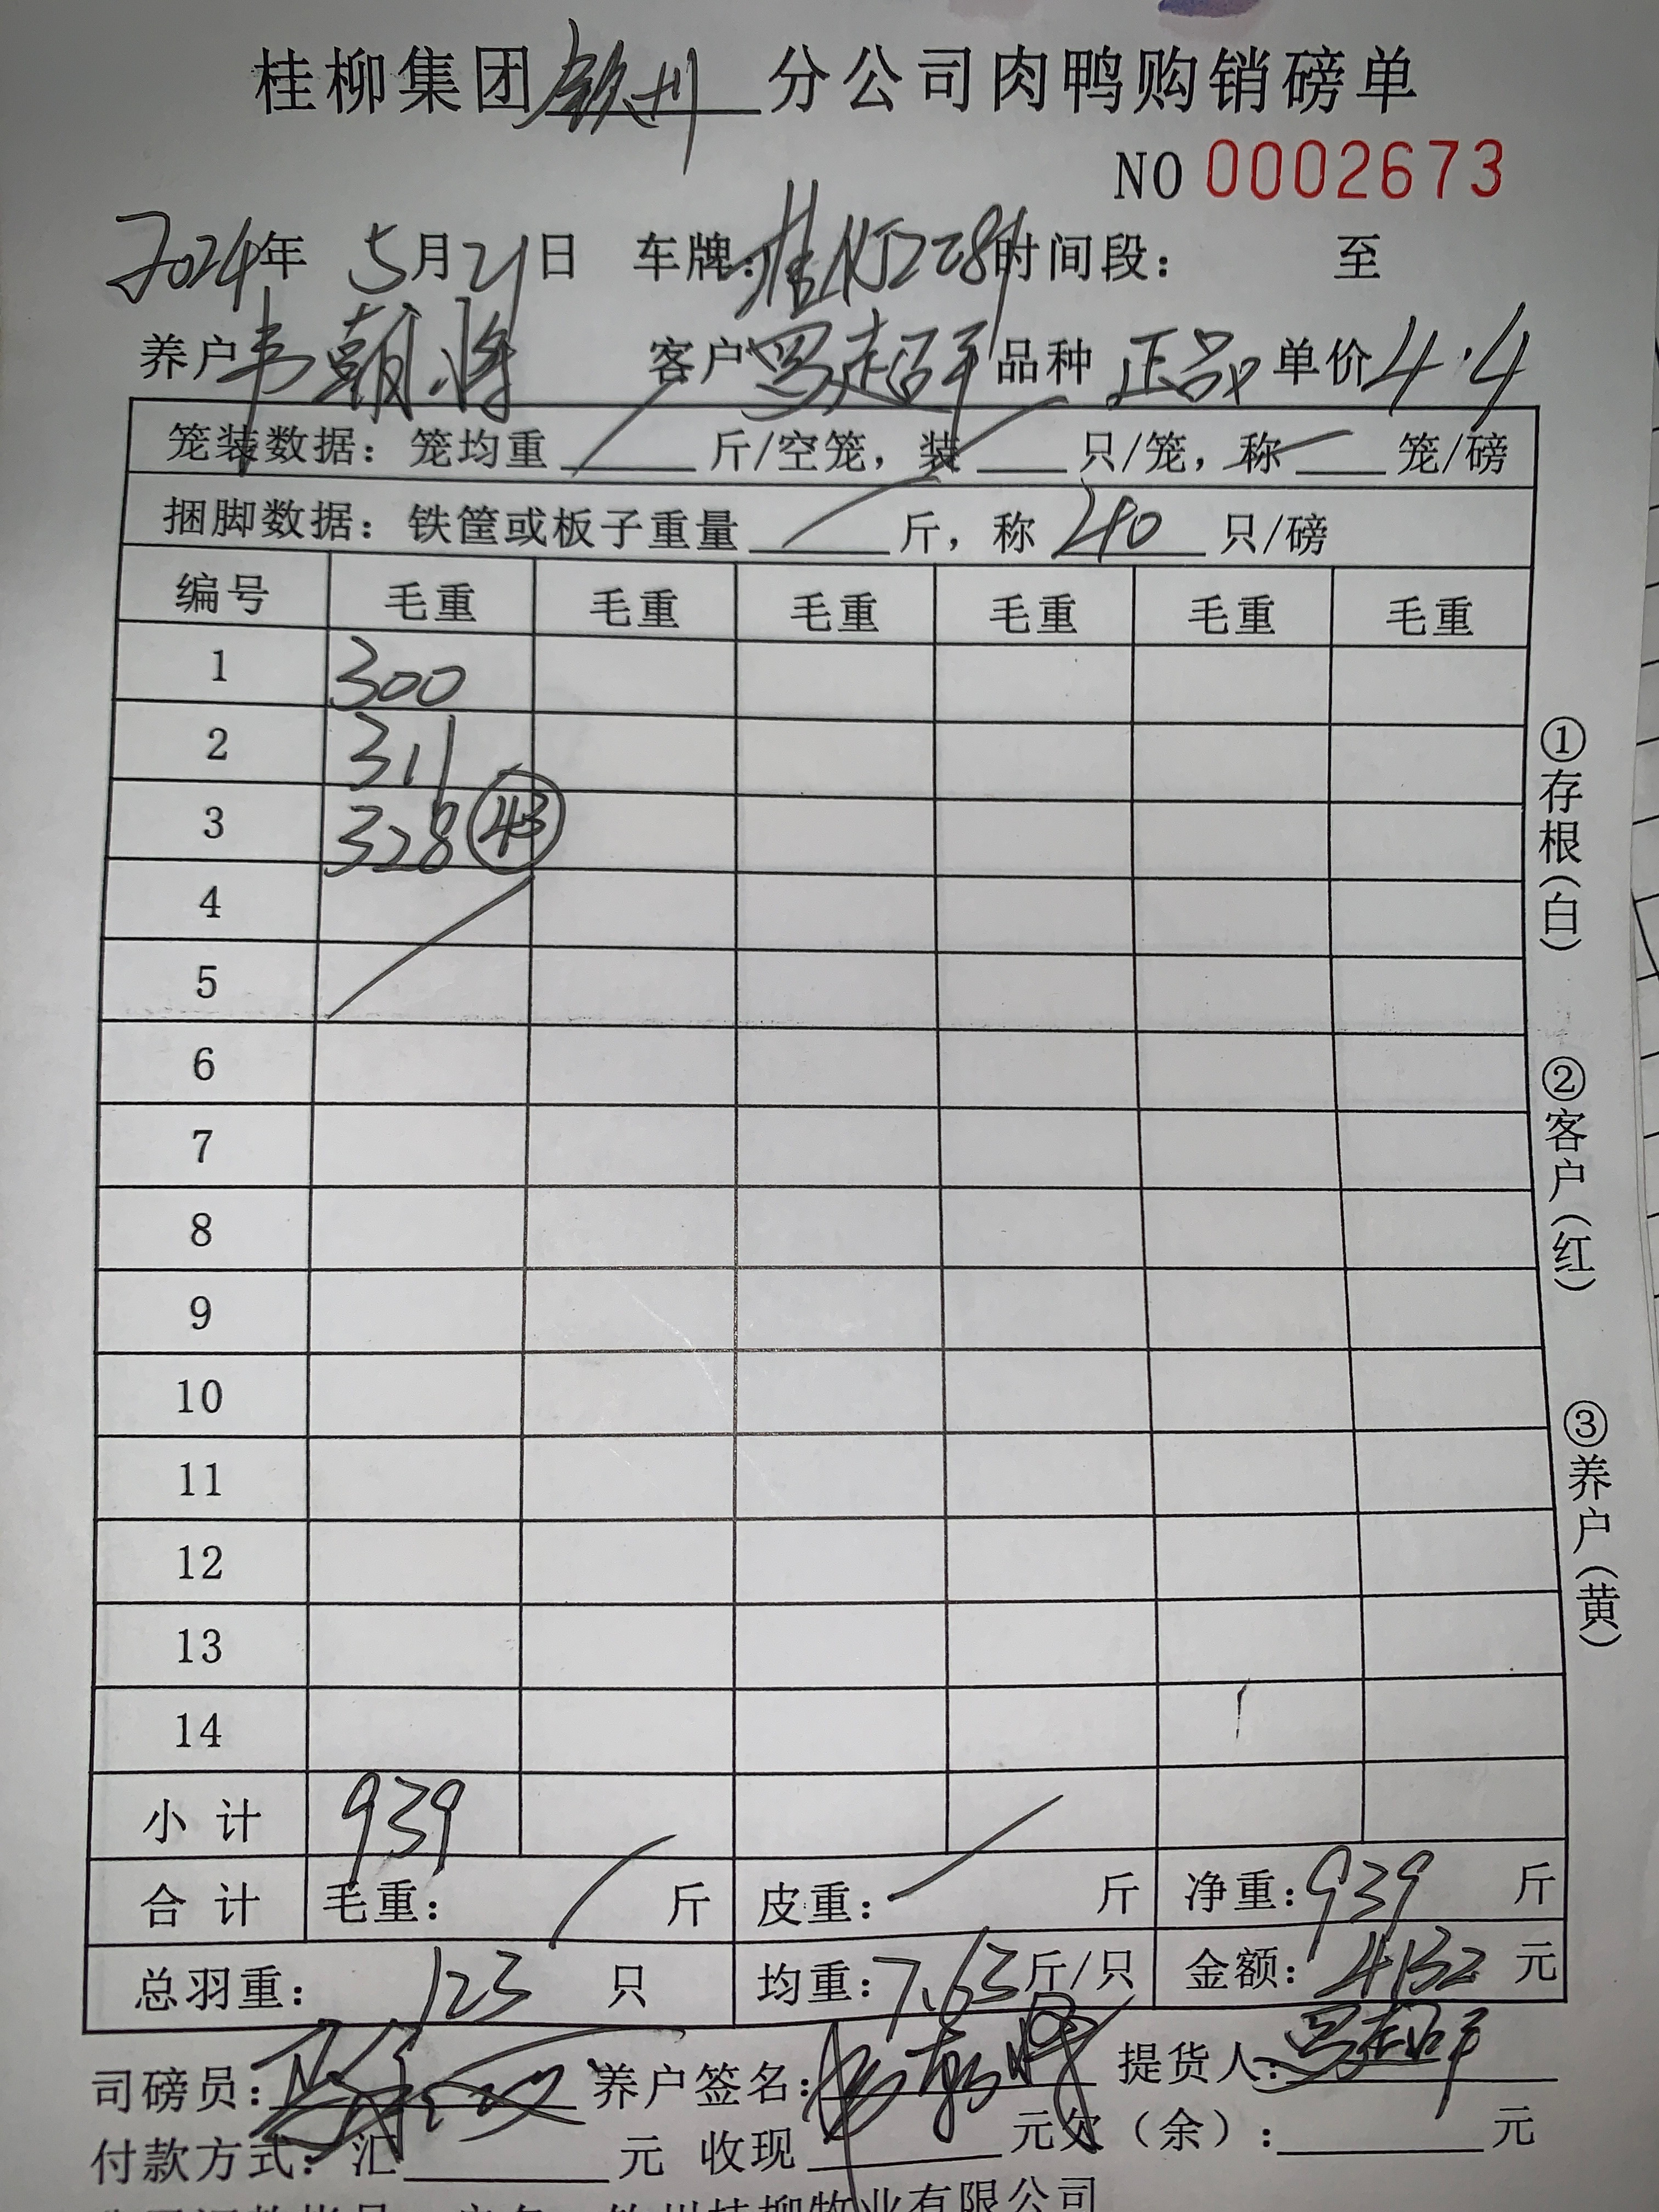 桂柳集团钦州分公司肉鸭购销磅单
NO 0002673
2024年 5月21日 车牌: 时间段: 至
养户韦朝将 客户 品种 正品 单价4.4
笼装数据: 笼均重 斤/空笼, 装 只/笼, 称 笼/磅
捆脚数据: 铁筐或板子重量 斤, 称 40 只/磅
编号 毛重 毛重 毛重 毛重 毛重 毛重
1 300
2 311
3 328 43
4
5
6
7
8
9
10
11
12
13
14
小计 939
合计 毛重: 斤 皮重: 斤 净重: 939 斤
总羽重: 123 只 均重: 7.63斤/只 金额: 4132 元
司磅员: 养户签名: 提货人:
付款方式: 汇 元 收现 元欠(余): 元
①存根(白)
②客户(红)
③养户(黄)